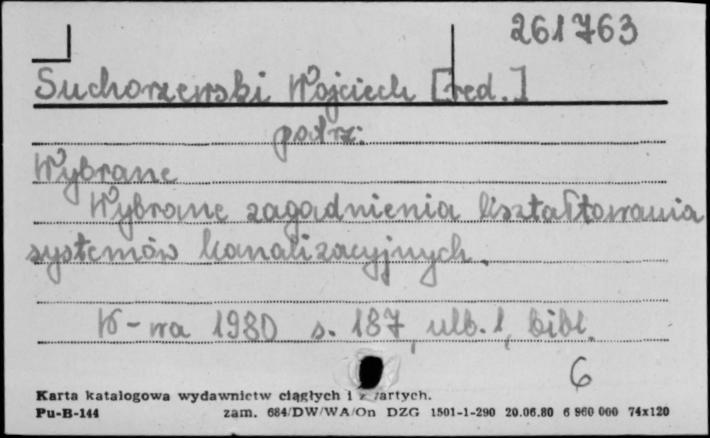 261763
Suchorzewski Wojciech [red.]
patrz:
Wybrane
Wybrane zagadnienia kształtowania
systemów kanalizacyjnych.
W-wa 1980 s. 187, ulb. 1, bibl.
6
Karta katalogowa wydawnictw ciągłych i zwartych.
Pu-B-144 zam. 684/DW/WA/On DZG 1501-1-290 20.06.80 6 960 000 74x120